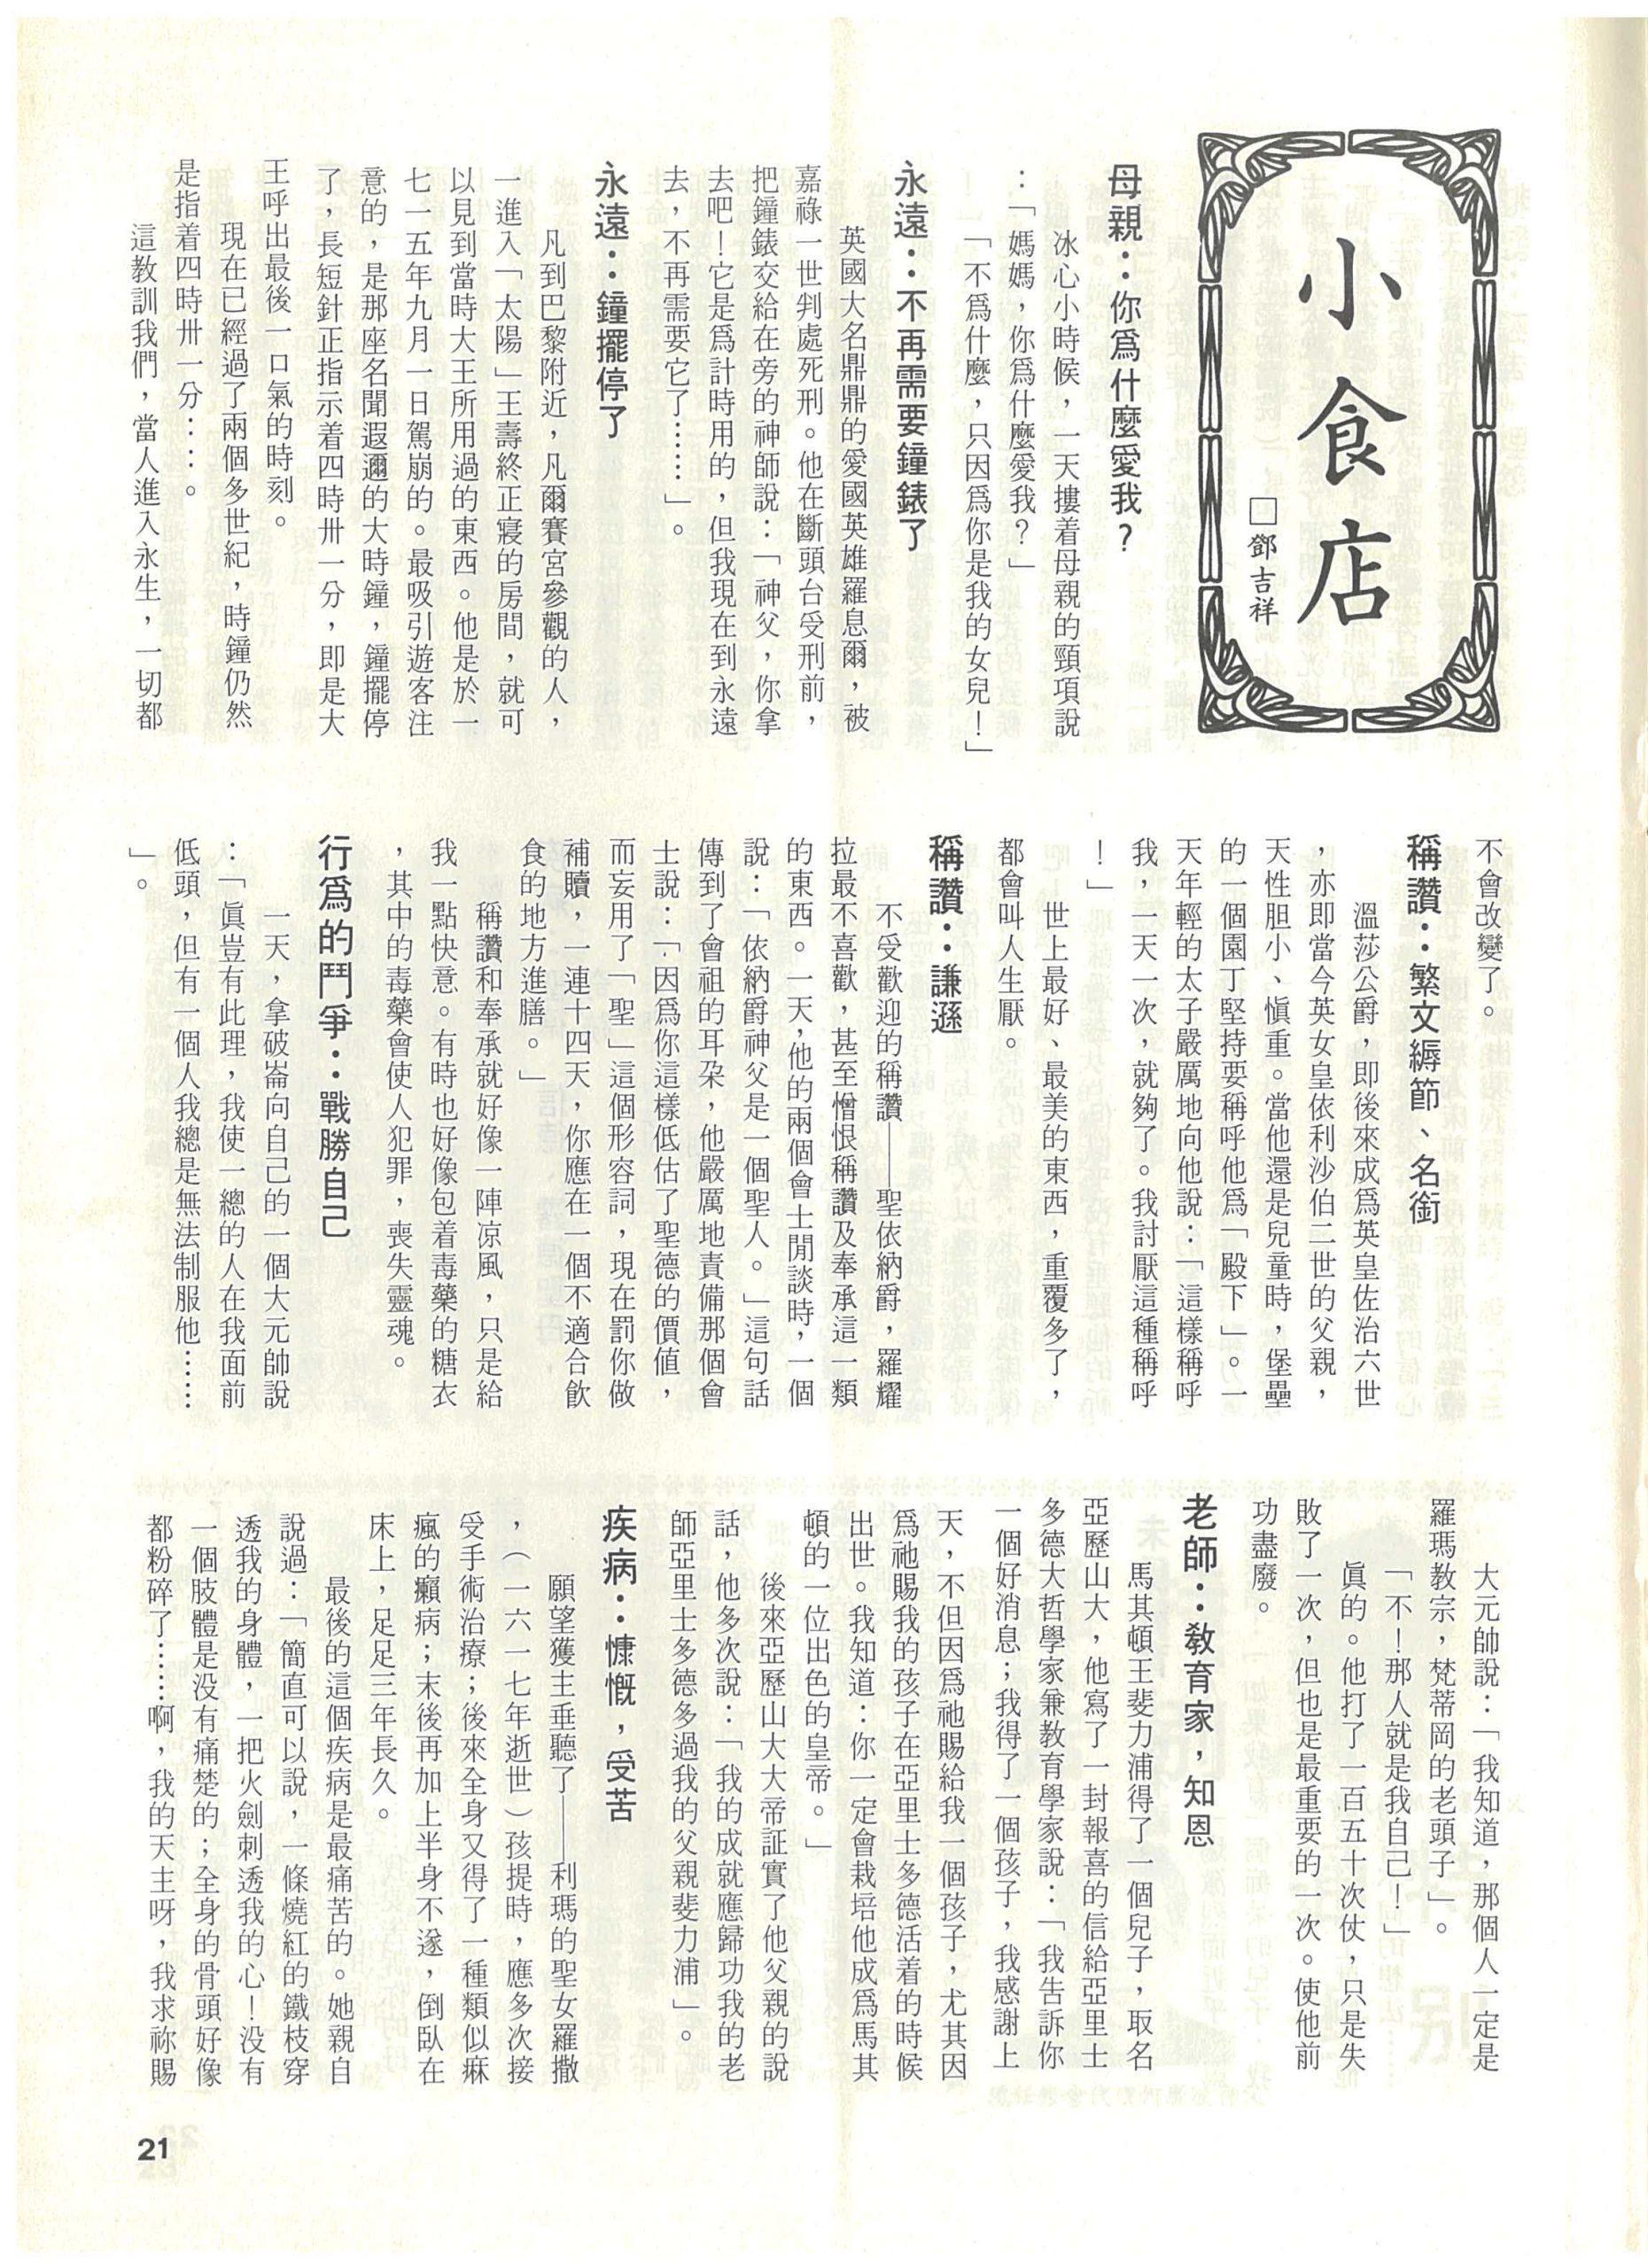 小食店
□鄧吉祥
母親：你爲什麼愛我？
冰心小時候，一天摟着母親的頸項說
：「媽媽，你爲什麼愛我？」
「不爲什麼，只因爲你是我的女兒！」
永遠：不再需要鐘錶了
英國大名鼎鼎的愛國英雄羅息爾，被
嘉祿一世判處死刑。他在斷頭台受刑前，
把鐘錶交給在旁的神師說：「神父，你拿
去吧！它是爲計時用的，但我現在到永遠
去，不再需要它了……」。
永遠：鐘擺停了
凡到巴黎附近，凡爾賽宮參觀的人，
一進入「太陽」王壽終正寢的房間，就可
以見到當時大王所用過的東西。他是於一
七一五年九月一日駕崩的。最吸引遊客注
意的，是那座名聞遐邇的大時鐘，鐘擺停
了，長短針正指示着四時卅一分，即是大
王呼出最後一口氣的時刻。
現在已經過了兩個多世紀，時鐘仍然
是指着四時卅一分……。
這教訓我們，當人進入永生，一切都
不會改變了。
稱讚：繁文縟節、名銜
溫莎公爵，即後來成爲英皇佐治六世
，亦即當今英女皇依利沙伯二世的父親，
天性胆小、慎重。當他還是兒童時，堡壘
的一個園丁堅持要稱呼他爲「殿下」。一
天年輕的太子嚴厲地向他說：「這樣稱呼
我，一天一次，就夠了。我討厭這種稱呼
！」
世上最好、最美的東西，重覆多了，
都會叫人生厭。
稱讚：謙遜
不受歡迎的稱讚——聖依納爵，羅耀
拉最不喜歡，甚至憎恨稱讚及奉承這一類
的東西。一天，他的兩個會士閒談時，一個
說：「依納爵神父是一個聖人。」這句話
傳到了會祖的耳朶，他嚴厲地責備那個會
士說：「因爲你這樣低估了聖德的價值，
而妄用了「聖」這個形容詞，現在罰你做
補贖，一連十四天，你應在一個不適合飲
食的地方進膳。」
稱讚和奉承就好像一陣涼風，只是給
我一點快意。有時也好像包着毒藥的糖衣
，其中的毒藥會使人犯罪，喪失靈魂。
行爲的鬥爭：戰勝自己
一天，拿破崙向自己的一個大元帥說
：「眞豈有此理，我使一總的人在我面前
低頭，但有一個人我總是無法制服他……
」。
大元帥說：「我知道，那個人一定是
羅瑪教宗，梵蒂岡的老頭子」。
「不！那人就是我自己！」
眞的。他打了一百五十次仗，只是失
敗了一次，但也是最重要的一次。使他前
功盡廢。
老師：教育家，知恩
馬其頓王斐力浦得了一個兒子，取名
亞歷山大，他寫了一封報喜的信給亞里士
多德大哲學家兼教育學家說：「我告訴你
一個好消息；我得了一個孩子，我感謝上
天，不但因爲祂賜給我一個孩子，尤其因
爲祂賜我的孩子在亞里士多德活着的時候
出世。我知道：你一定會栽培他成爲馬其
頓的一位出色的皇帝。」
後來亞歷山大大帝証實了他父親的說
話，他多次說：「我的成就應歸功我的老
師亞里士多德多過我的父親斐力浦」。
疾病：慷慨，受苦
願望獲主垂聽了——利瑪的聖女羅撒
，（一六一七年逝世）孩提時，應多次接
受手術治療；後來全身又得了一種類似痳
瘋的癩病；末後再加上半身不遂，倒臥在
床上，足足三年長久。
最後的這個疾病是最痛苦的。她親自
說過：「簡直可以說，一條燒紅的鐵枝穿
透我的身體，一把火劍刺透我的心！没有
一個肢體是没有痛楚的；全身的骨頭好像
都粉碎了……啊，我的天主呀，我求祢賜
21